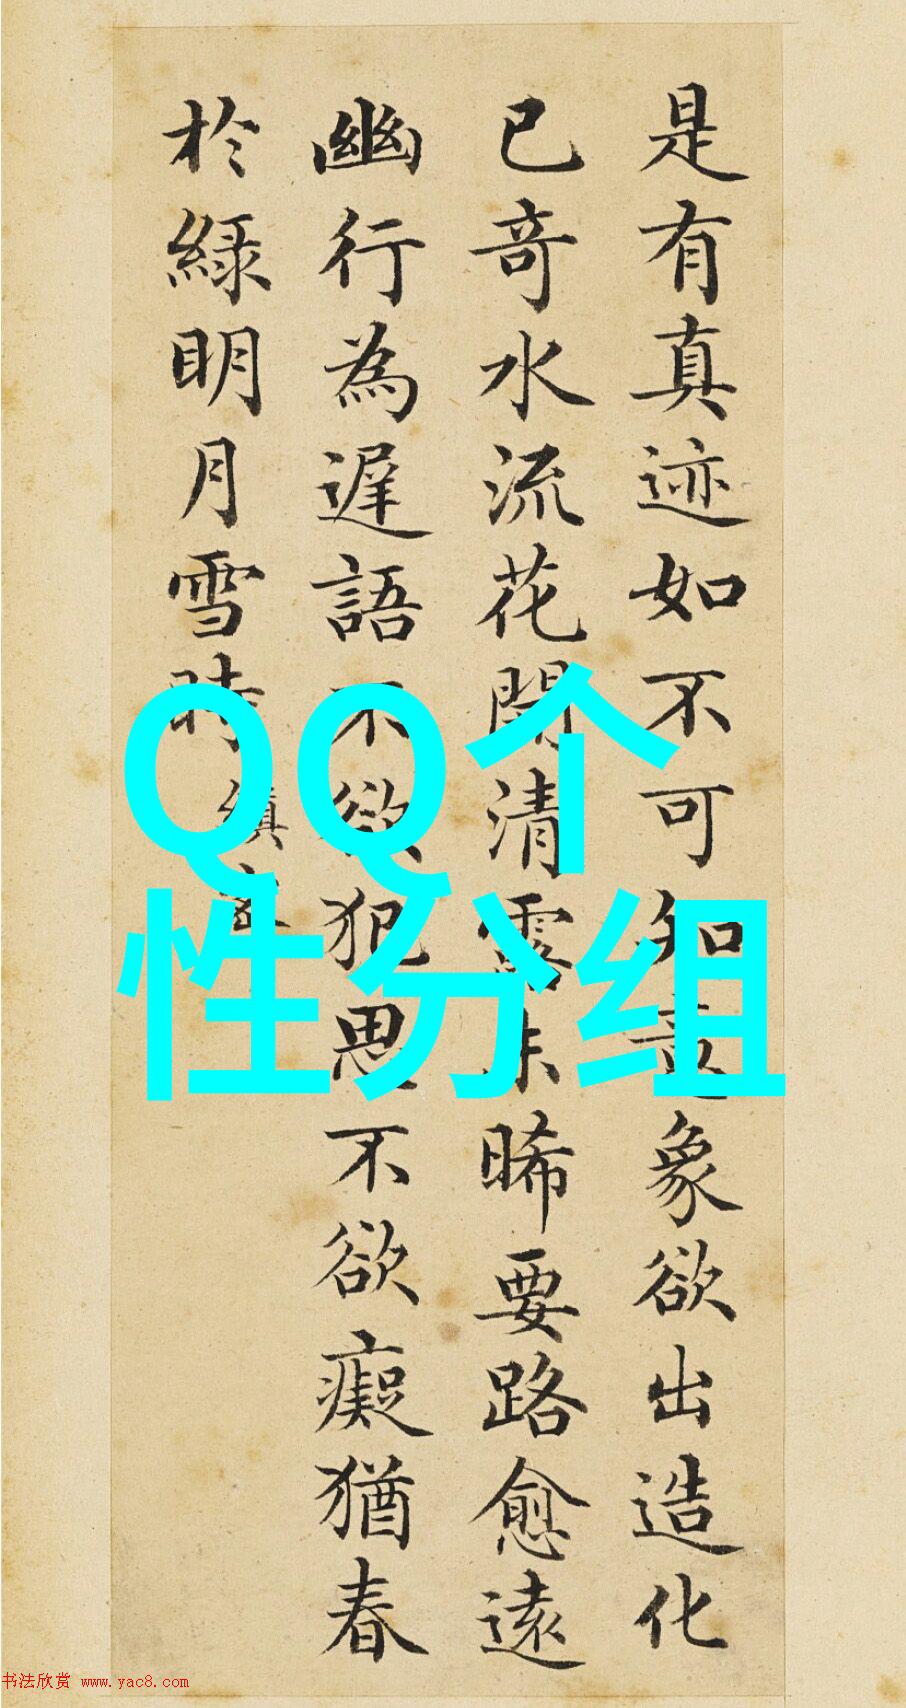 是有真迹如不可知意象欲出造化
已奇水流花開清露未晞要路愈遠
幽行為遲語不欲犯思不欲癡猶春
於綠明月雪時
QQ个
性分组
书法欣赏 www.yac8.com